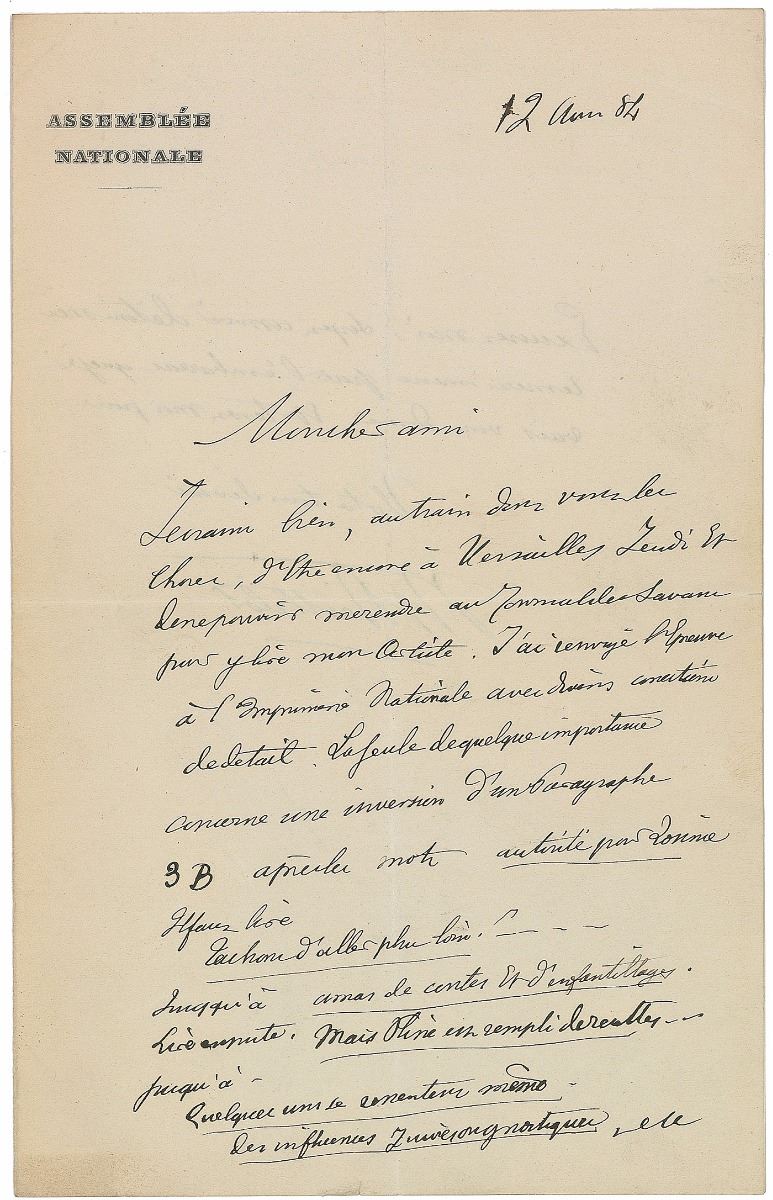 ASSEMBLÉE
NATIONALE
12 Aou 84
Mon cher ami
Je crains bien, au train dont vont les
choses, d'être encore à Versailles Jeudi et
de ne pouvoir me rendre au Journal des Savans
pour y lire mon Article. J'ai renvoyé l'Epreuve
à l'Imprimerie Nationale avec divers corrections
de detail. La seule de quelque importance
concerne une inversion d'un Paragraphe
3 B après les mots autorité pour Zosime
Il faut lire
Tachons d'aller plus loin.
Jusqu'à amas de contes et d'enfantillages.
Lire ensuite. Mais Pline est rempli de recettes
jusqu'à -
Quelques uns se ressentent même
des influences Juives ou gnostiques, etc